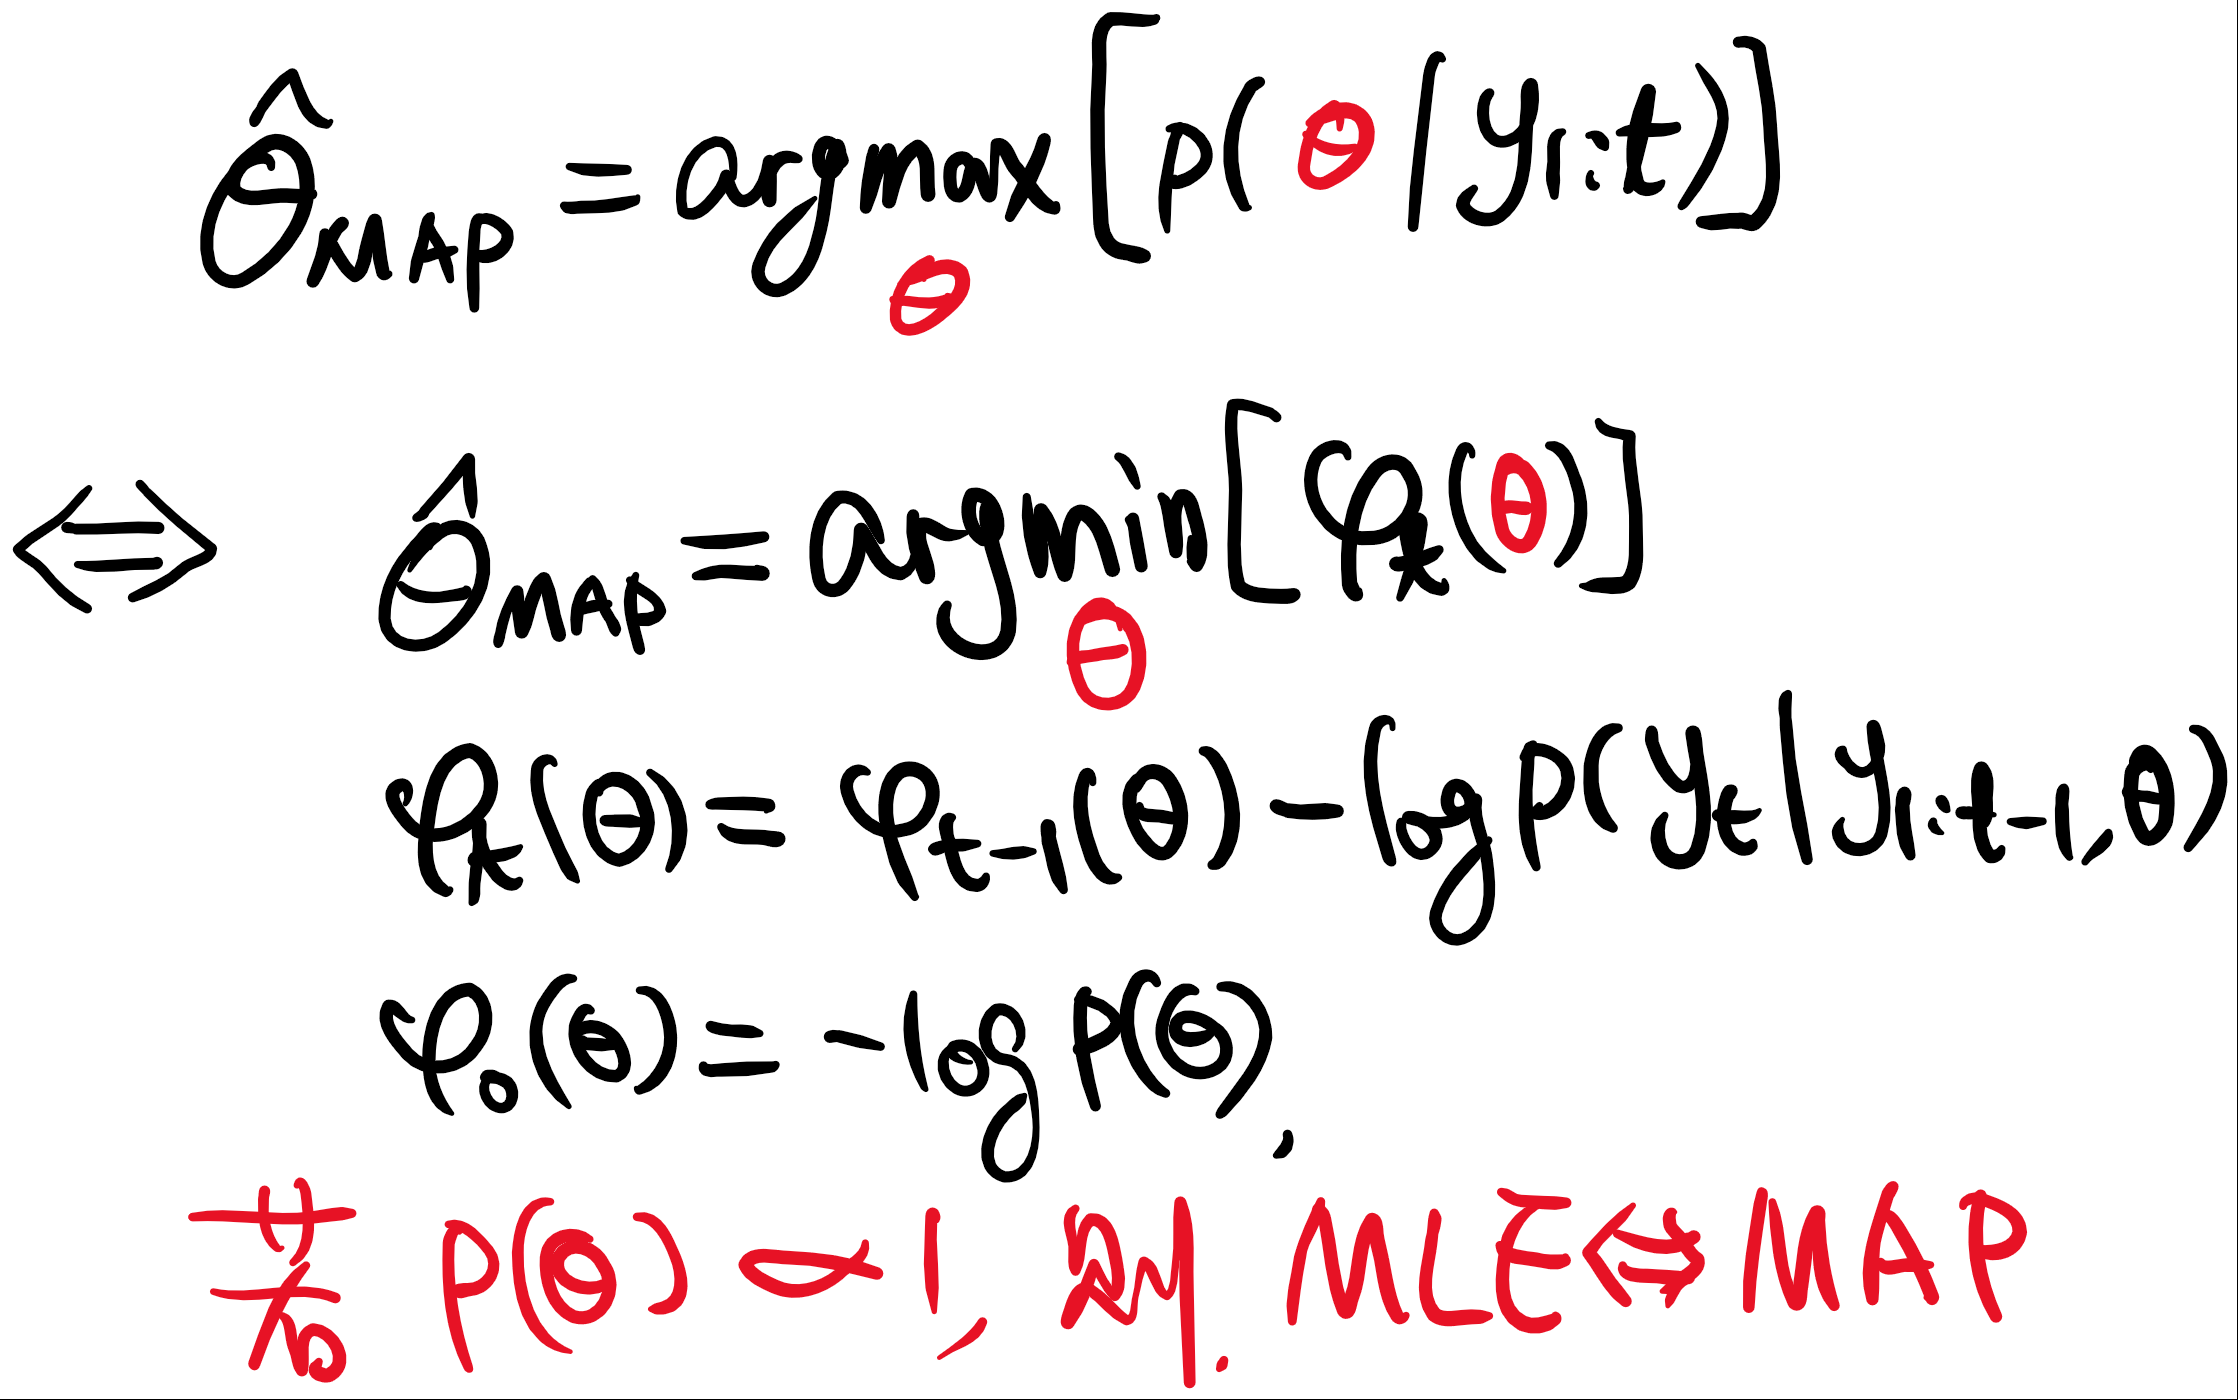 θ̂_MAP = argmax_θ [p(θ | y_1:t)]
⟺ θ̂_MAP = argmin_θ [φ_t(θ)]
φ_t(θ) = φ_t-1(θ) - log p(y_t | y_1:t-1, θ)
φ_0(θ) = - log p(θ),
若 p(θ) ∝ 1, 则. MLE ⇔ MAP